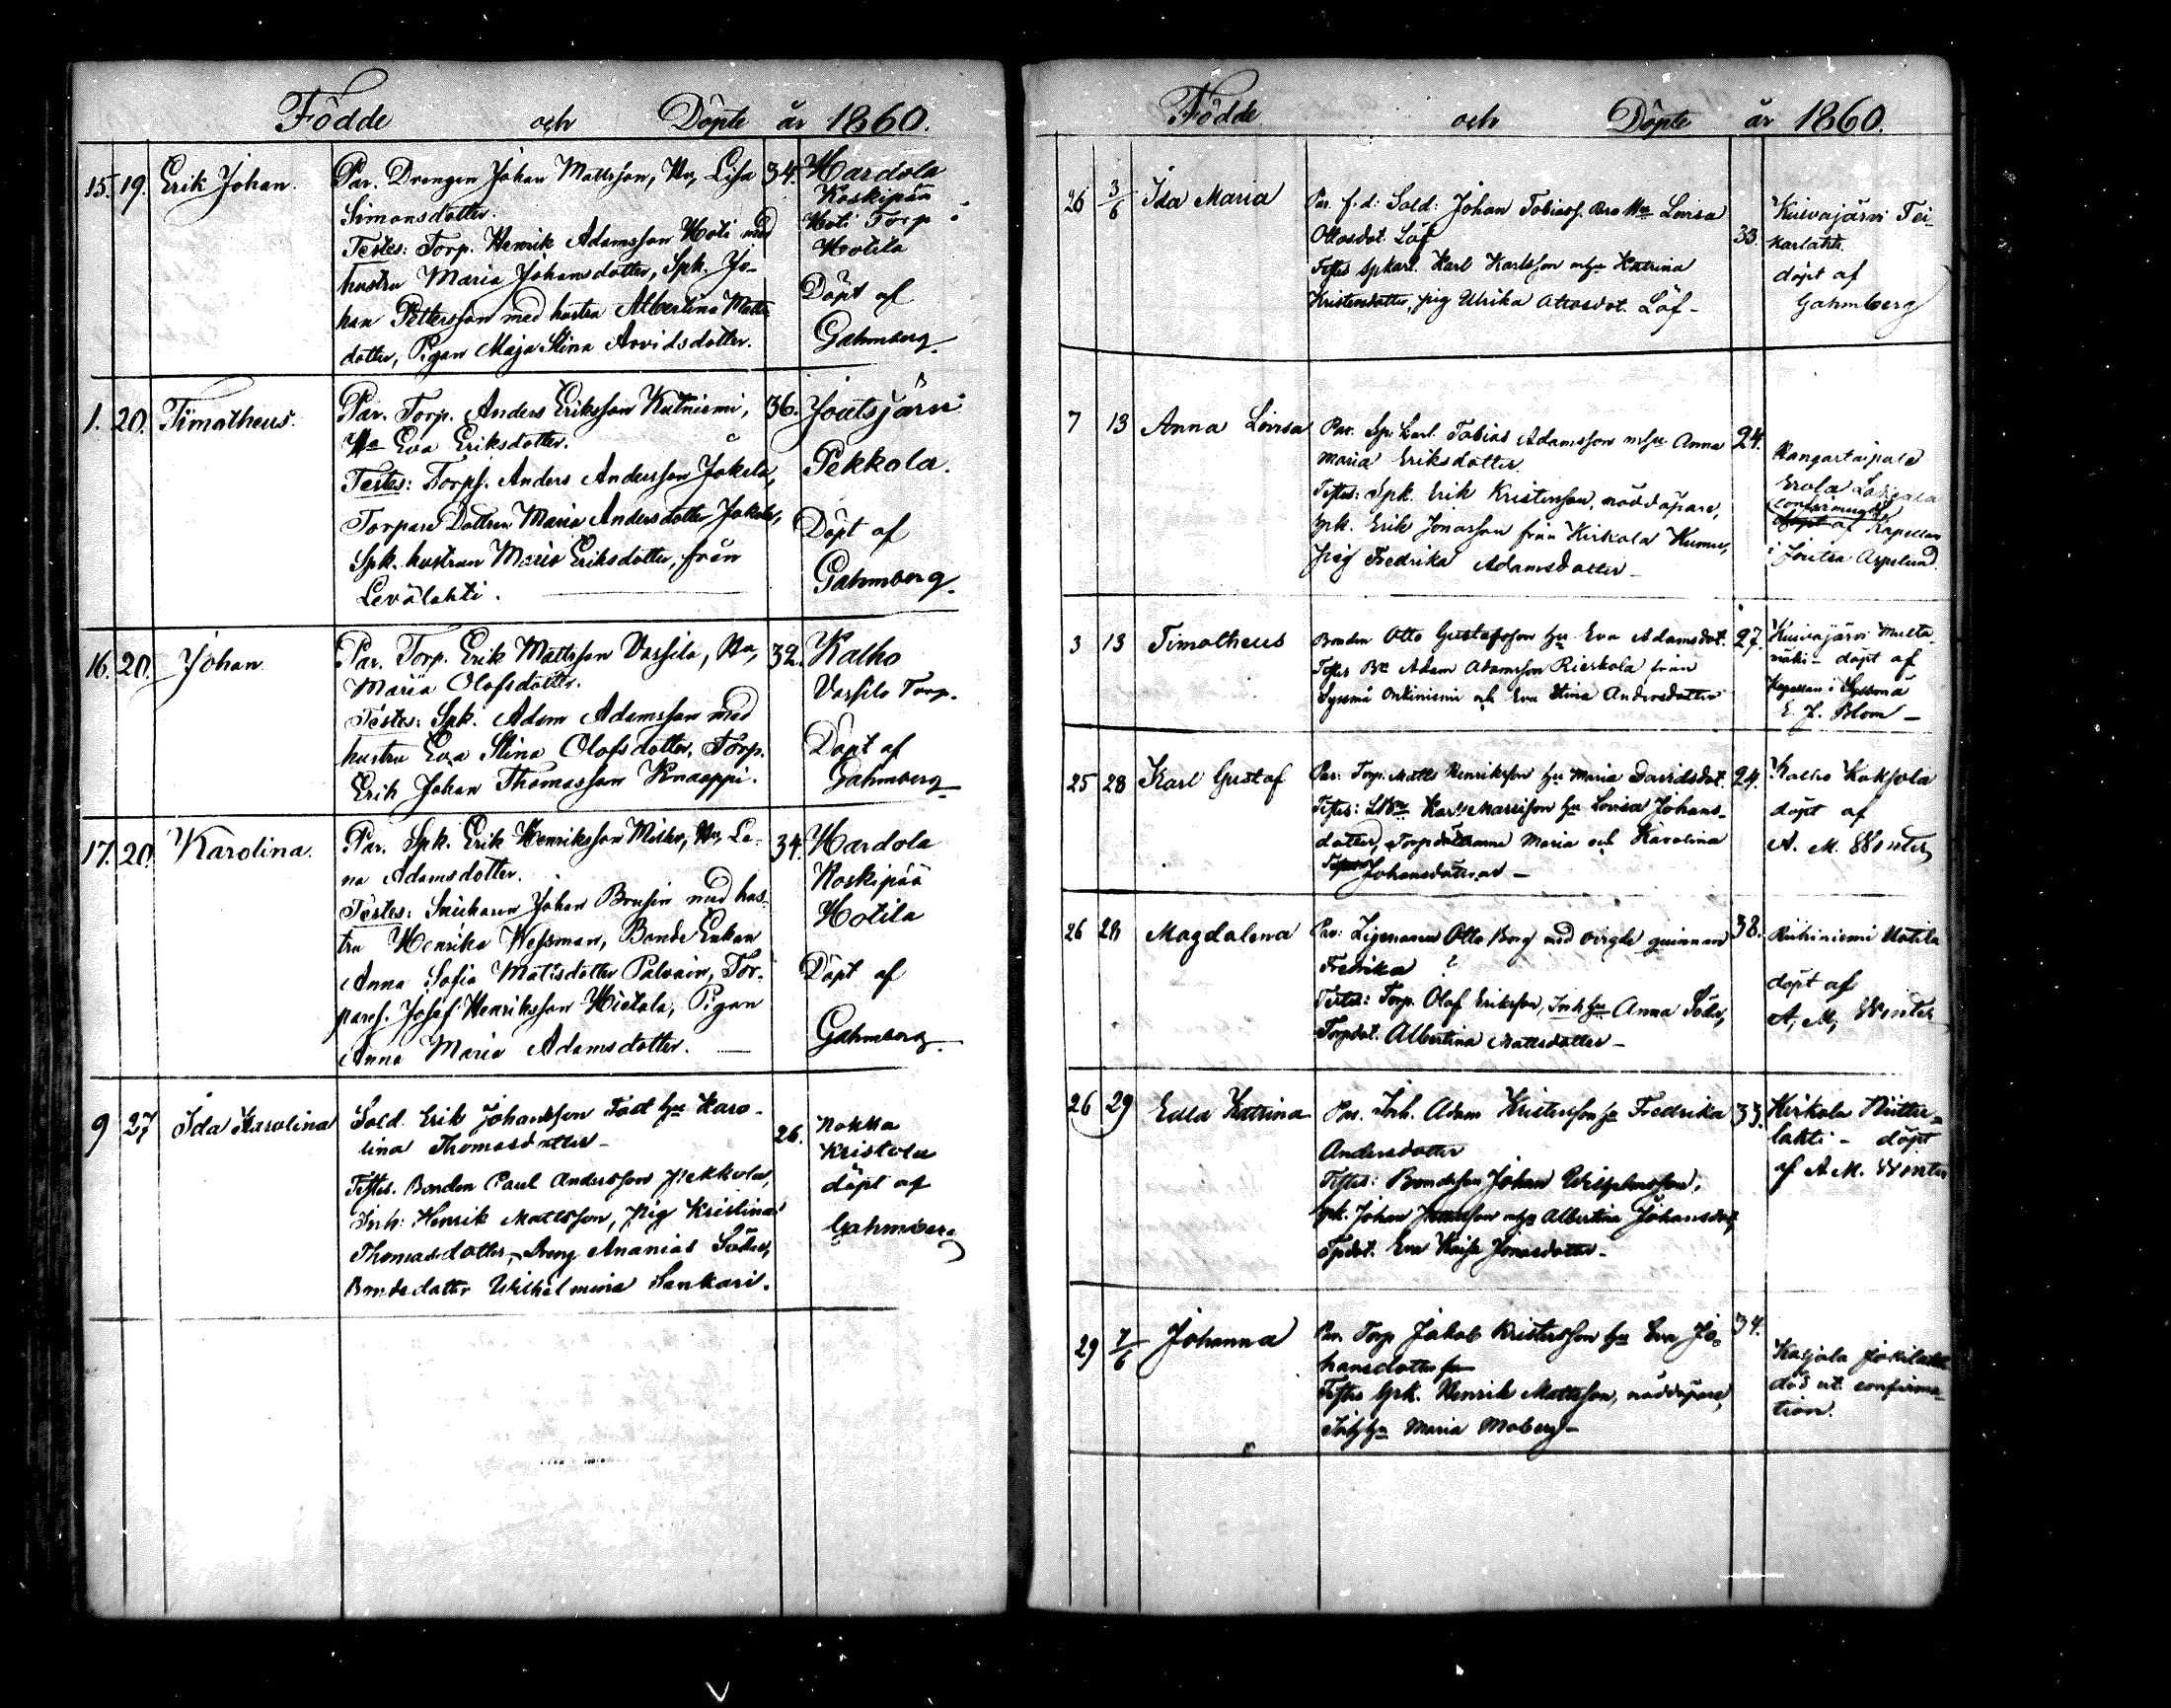 Födde och Döpte år 1860.
15. 19. Erik Johan. Par. Drengen Johan Mattsson, Hu, Lisa 34. Hardola
Simonsdotter. Koskipää
Testes: Torp. Henrik Adamsson Hoti med Hoti Torp
hustru Maria Johansdotter, Spk. Jo- Hotila
han Pettersson med hustru Albertina Matts- Döpt af
dotter, Pigan Maja Stina Arvidsdotter. Gahmberg.
1. 20. Timotheus. Par. Torp. Anders Eriksson Kutniemi, 36. Joutsjärvi
Hu Eva Eriksdotter.
Testes: Torps. Anders Andersson Jokela, Pekkola.
Torpare Dottren Maria Andersdotter Jokela, Döpt af
Spk. hustrun Maria Eriksdotter, från
Levälahti. Gahmberg.
16. 20. Johan. Par. Torp. Erik Mattsson Vassila, Hu, 32. Kalho
Maria Olofsdotter. Vassila Torp.
Testes: Spk. Adam Adamsson med
hustru Eva Stina Olofsdotter, Torp. Döpt af
Erik Johan Thomasson Knaappi. Gahmberg
17. 20. Karolina. Par. Spk. Erik Henriksson Hu, Le- 34. Hardola
na Adamsdotter. Koskipää
Testes: Johan Brusin med hus- Hotila
tru Henrika Wessman, Bonde Enkan
Anna Sofia Matsdotter Tor- Döpt af
pares. Josef Henriksson Hietala, Pigan
Anna Maria Adamsdotter. Gahmberg.
9 27 Ida Karolina Sold. Erik Johansson Fast hu Karo- 26. Nokka
lina Thomasdotter - Kristola
Testes. Bonden Paul Andersson Pekkola, döpt af
Inh: Henrik Mattsson, pig Kristina
Thomasdotter, Dreng Ananias Söder, Gahmberg
Bondedotter Wilhelmina Sankari.
Födde och Döpte år 1860.
26 3/6 Ida Maria Par. f.d. Sold: Johan Tobiass. Hu Lovisa 33. Kuivajärvi Tei-
Ottosdot. Löf karlahti.
Testes spkarl. Karl Karlsson mhu Katrina döpt af
Kristersdotter, pig Ulrika Ottosdot. Löf - Gahmberg
7 13 Anna Lovisa Par. Sp. karl. Tobias Adamsson mhu Anna 24. Kangastaipale
Maria Eriksdotter. Erola
Testes: Spk. Erik Kristersson, nöddöpare, confirmerad
spk. Erik Jonasson från Kirkola af Kapellan
pig Fredrika Adamsdotter - i Joutsa Aspelund.
3 13 Timotheus Bonden Otto Gustafsson hu Eva Adamsdot. 27. Kuivajärvi Multa-
Testes Adam Adamsson Rieskola från mäki - döpt af
Sysmä Onkiniemi och Eva Stina Andersdotter Kapellan i Sysmä
E. J. Blom -
25 28 Karl Gustaf Par: Torp. Matts Henriksson hu Maria Davidsdot. 24. Kalho Koksola
Testes: Karl Mattsson hu Lovisa Johans- döpt af
dotter, Torpdöttrarna Maria och Karolina A. M. Winter
Johansdöttrar -
26 28 Magdalena Par: Otto Borg med vigde quinnan 38. Riihiniemi Uotila
Fredrika ? döpt af
Testes: Torp. Olof Eriksson, Inh hu Anna Söder, A. M. Winter
Torpdot. Albertina Mattsdotter -
26 29 Edla Katrina Par. Inh. Adam Kristersson hu Fredrika 33. Kirkola
Andersdotter lahti - döpt
Testes: Bondeson Johan af A M. Winter
spk. Johan mhu Albertina Johansdot,
Tpdot. Eva Kaisa Jonasdotter -
29 7/6 Johanna Par. Torp Jakob Kristersson hu Eva Jo- 34.
hansdotter Kasjala
Testes Spk. Henrik Mattsson, nöddöpare, död ut. confirma-
Inh hu Maria Moberg - tion.